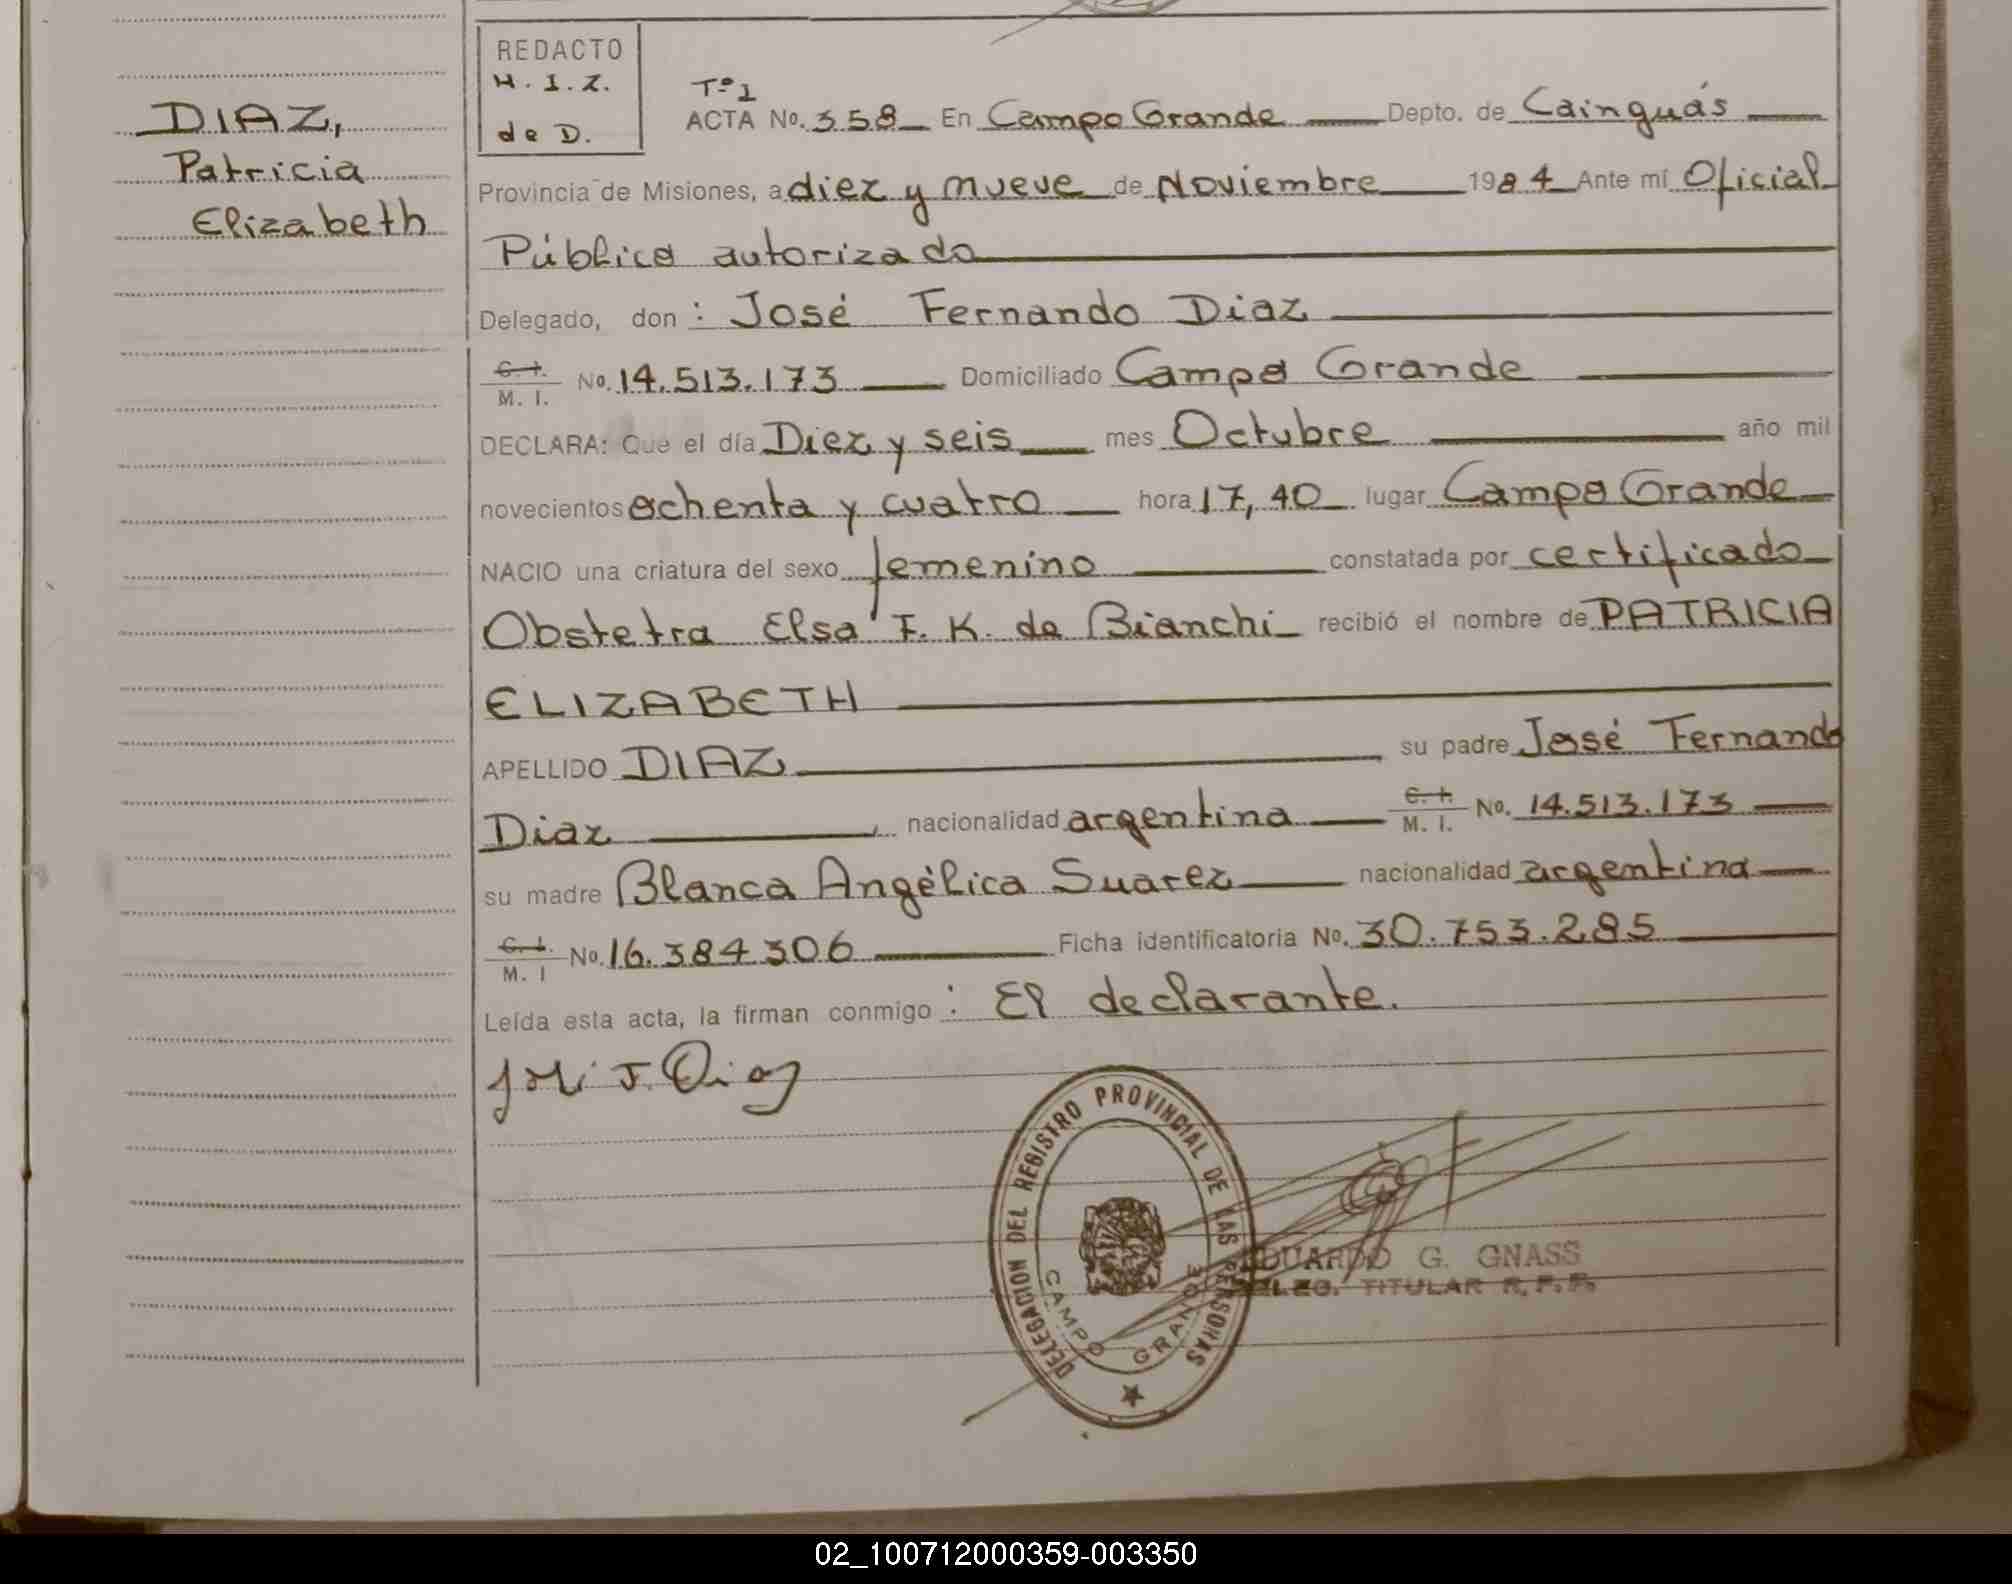 DIAZ,
Patricia
Elizabeth
REDACTO
H. I. Z.
de D.
Tº 1
ACTA No. 358 En Campo Grande Depto. de Cainguás
Provincia de Misiones, a diez y nueve de Noviembre 1984 Ante mí Oficial
Público autorizado
Delegado, don : José Fernando Diaz
C. I. M. I. No. 14.513.173 Domiciliado Campo Grande
DECLARA: Que el día Diez y seis mes Octubre año mil
novecientos ochenta y cuatro hora 17,40 lugar Campo Grande
NACIO una criatura del sexo femenino constatada por certificado
Obstetra Elsa F. K. de Bianchi recibió el nombre de PATRICIA
ELIZABETH
APELLIDO DIAZ su padre José Fernando
Diaz nacionalidad argentina C. I. M. I. No. 14.513.173
su madre Blanca Angélica Suarez nacionalidad argentina
C. I. M. I No. 16.384306 Ficha identificatoria No. 30.753.285
Leída esta acta, la firman conmigo : El declarante.
José F. Diaz
DELEGACION DEL REGISTRO PROVINCIAL DE LAS PERSONAS
CAMPO GRANDE
EDUARDO G. GNASS
DELEG. TITULAR R. P. P.
02_100712000359-003350